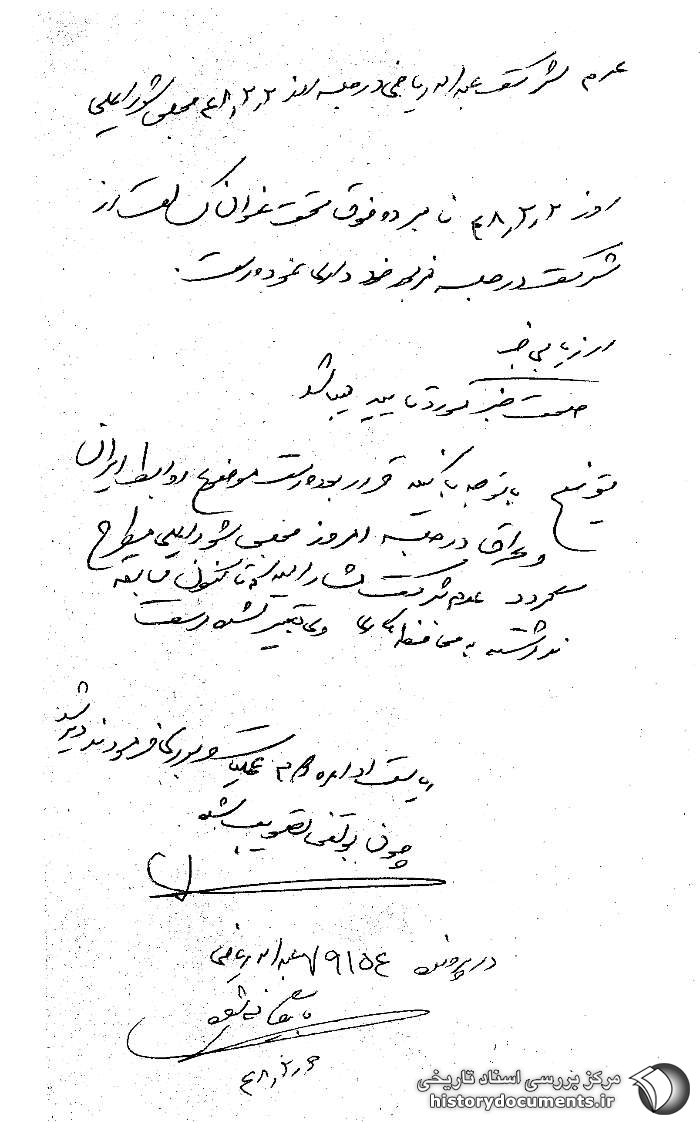 عدم شرکت عبداله ریاضی در جلسه روز ۴۸٫۲٫۲ مجلس شورایملی
روز ۴۸٫۲٫۲ نامبرده فوق تحت عنوان کسالت از
شرکت در جلسه مزبور خود داری نموده است.
ارزیابی خبر
صحت خبر مورد تایید میباشد
توضیح باتوجه باینکه قرار بوده است موضوع روابط ایران
و عراق در جلسه امروز مجلس شورایملی مطرح
گردد عدم شرکت مشارالیه که تا کنون سابقه
نداشته به محافظه کاری وی تعبیر شده است
ریاست اداره عملیات و بررسی فرمودند
چون تلفنی تصویب شد
در پرونده ۷۹۱۵۴ عبداله ریاضی
بایگانی شود
۴۸٫۲٫۶
مرکز بررسی اسناد تاریخی
historydocuments.ir